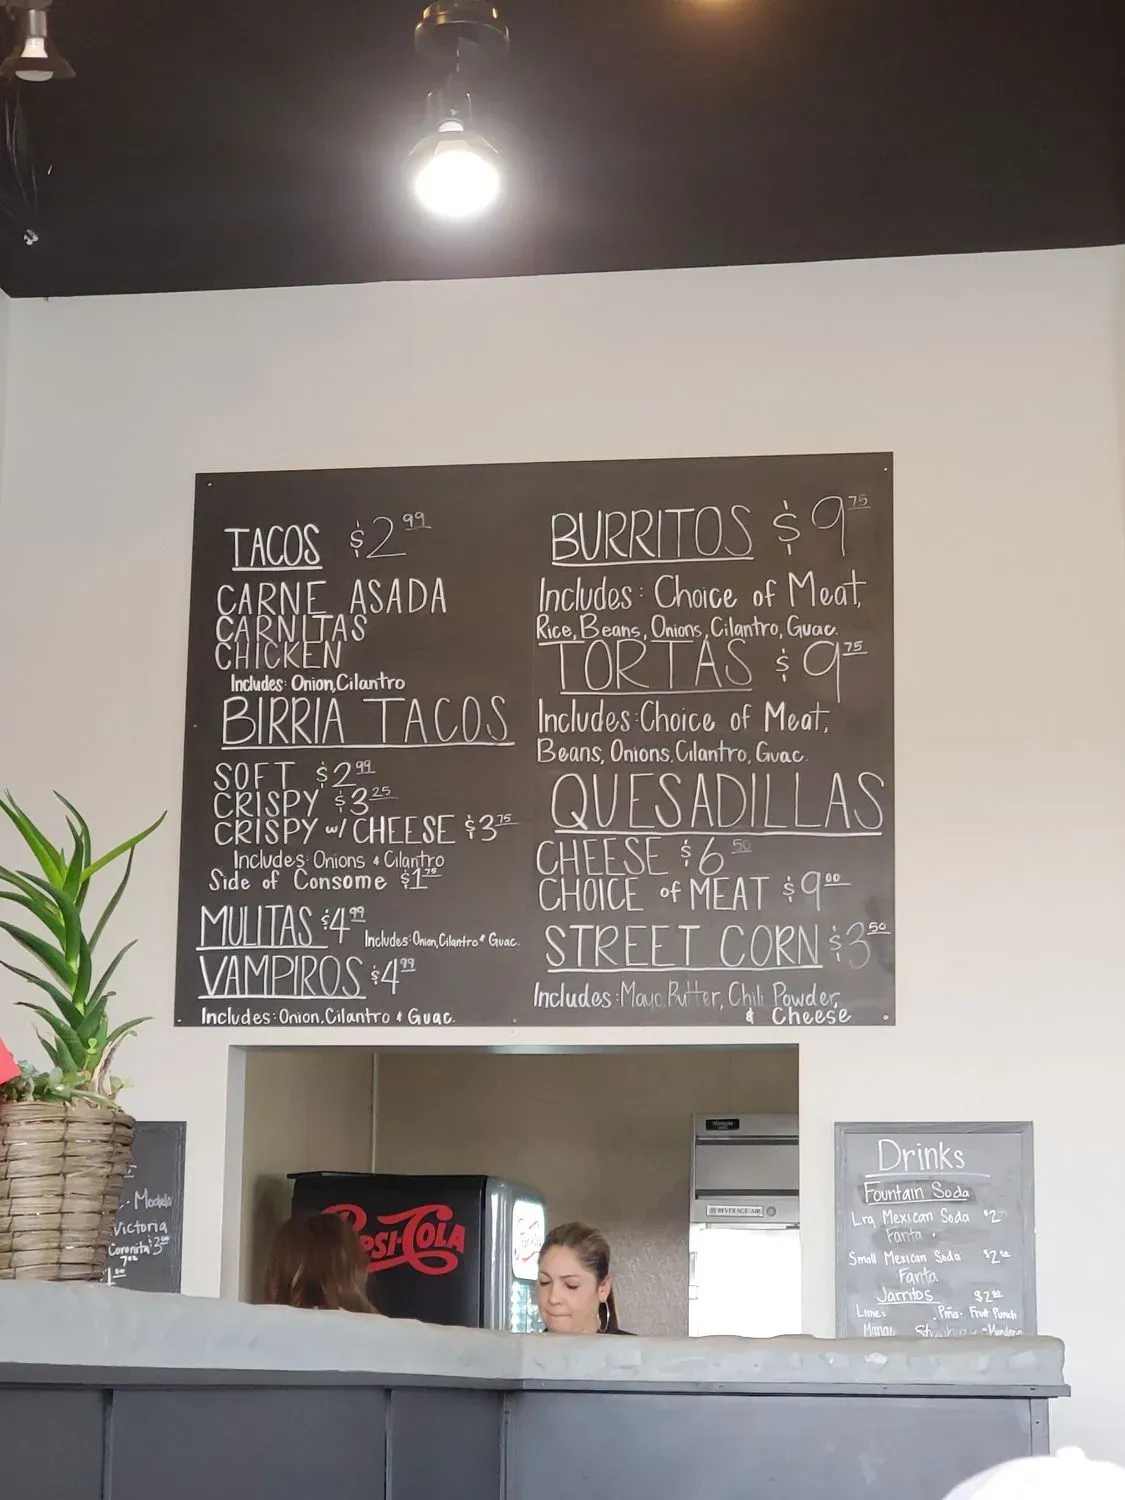 TACOS $2.99
CARNE ASADA
CARNITAS
CHICKEN
Includes: Onion, Cilantro
BIRRIA TACOS
SOFT $2.99
CRISPY $3.25
CRISPY w/ CHEESE $3.75
Includes: Onions & Cilantro
Side of Consome $1.75
MULITAS $4.99 Includes: Onion, Cilantro & Guac.
VAMPIROS $4.99
Includes: Onion, Cilantro & Guac.
BURRITOS $9.75
Includes: Choice of Meat,
Rice, Beans, Onions, Cilantro, Guac.
TORTAS $9.75
Includes: Choice of Meat,
Beans, Onions, Cilantro, Guac.
QUESADILLAS
CHEESE $6.50
CHOICE of MEAT $9.00
STREET CORN $3.50
Includes: Mayo, Butter, Chili Powder,
& Cheese
Modelo
Victoria
Coronita
7oz
PEPSI-COLA
BEVERAGE-AIR
Drinks
Fountain Soda
Lrg Mexican Soda
Fanta
Small Mexican Soda
Fanta
Jarritos
Lime Piña Fruit Punch